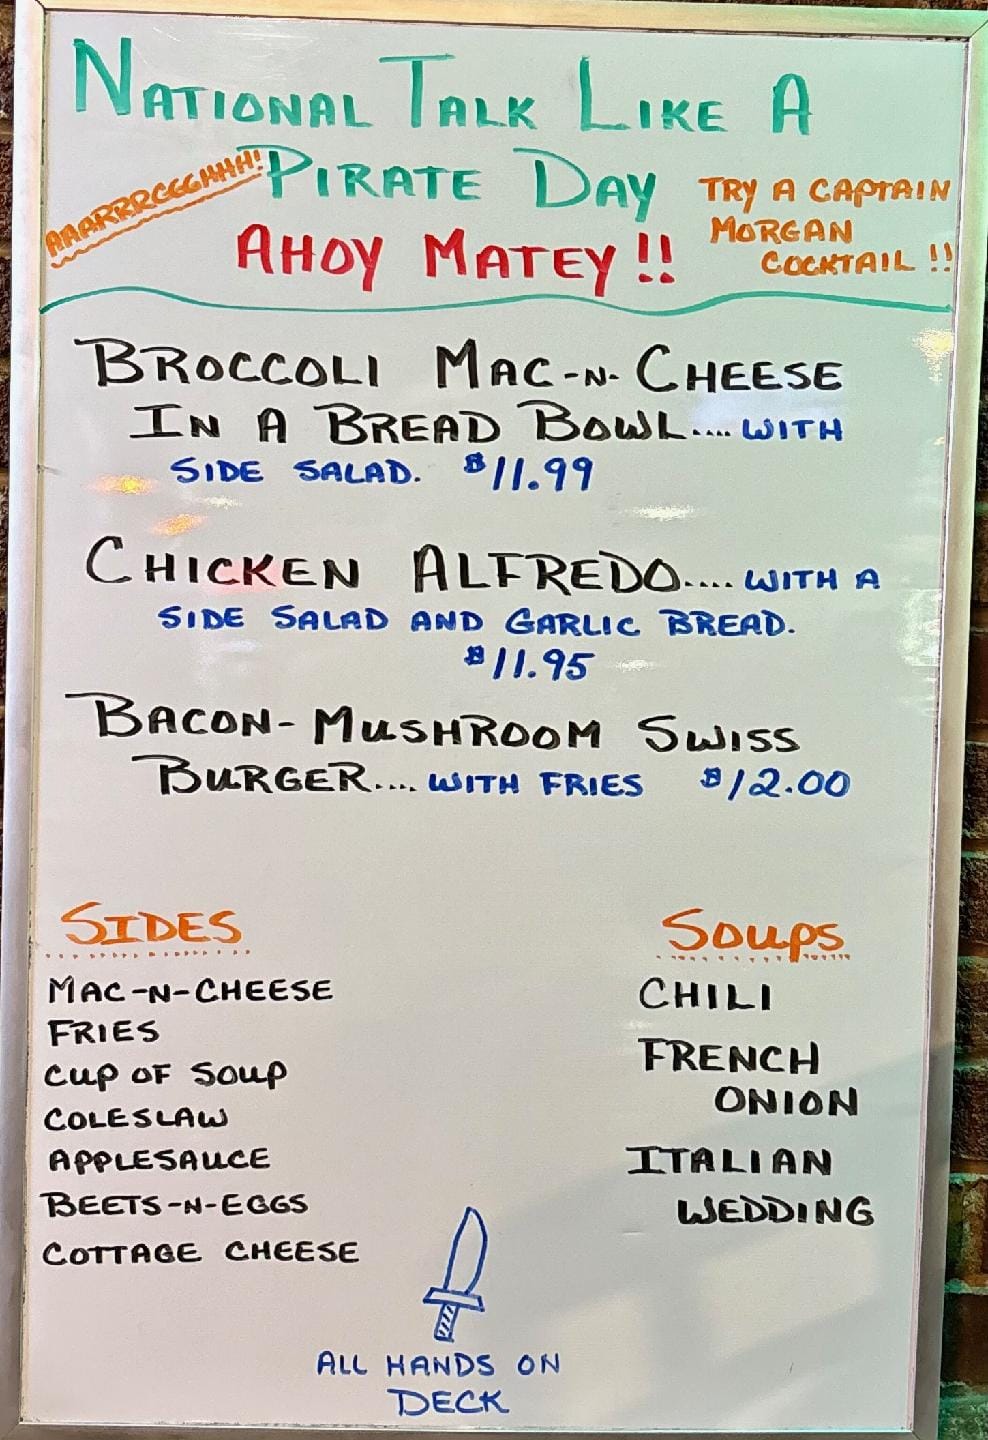 NATIONAL TALK LIKE A
PIRATE DAY
AAARRRRGGGHHH!
AHOY MATEY!!
TRY A CAPTAIN
MORGAN
COCKTAIL!!
BROCCOLI MAC-N-CHEESE
IN A BREAD BOWL.... WITH
SIDE SALAD. $11.99
CHICKEN ALFREDO.... WITH A
SIDE SALAD AND GARLIC BREAD.
$11.95
BACON-MUSHROOM SWISS
BURGER.... WITH FRIES $12.00
SIDES
MAC-N-CHEESE
FRIES
CUP OF SOUP
COLESLAW
APPLESAUCE
BEETS-N-EGGS
COTTAGE CHEESE
SOUPS
CHILI
FRENCH
ONION
ITALIAN
WEDDING
ALL HANDS ON
DECK